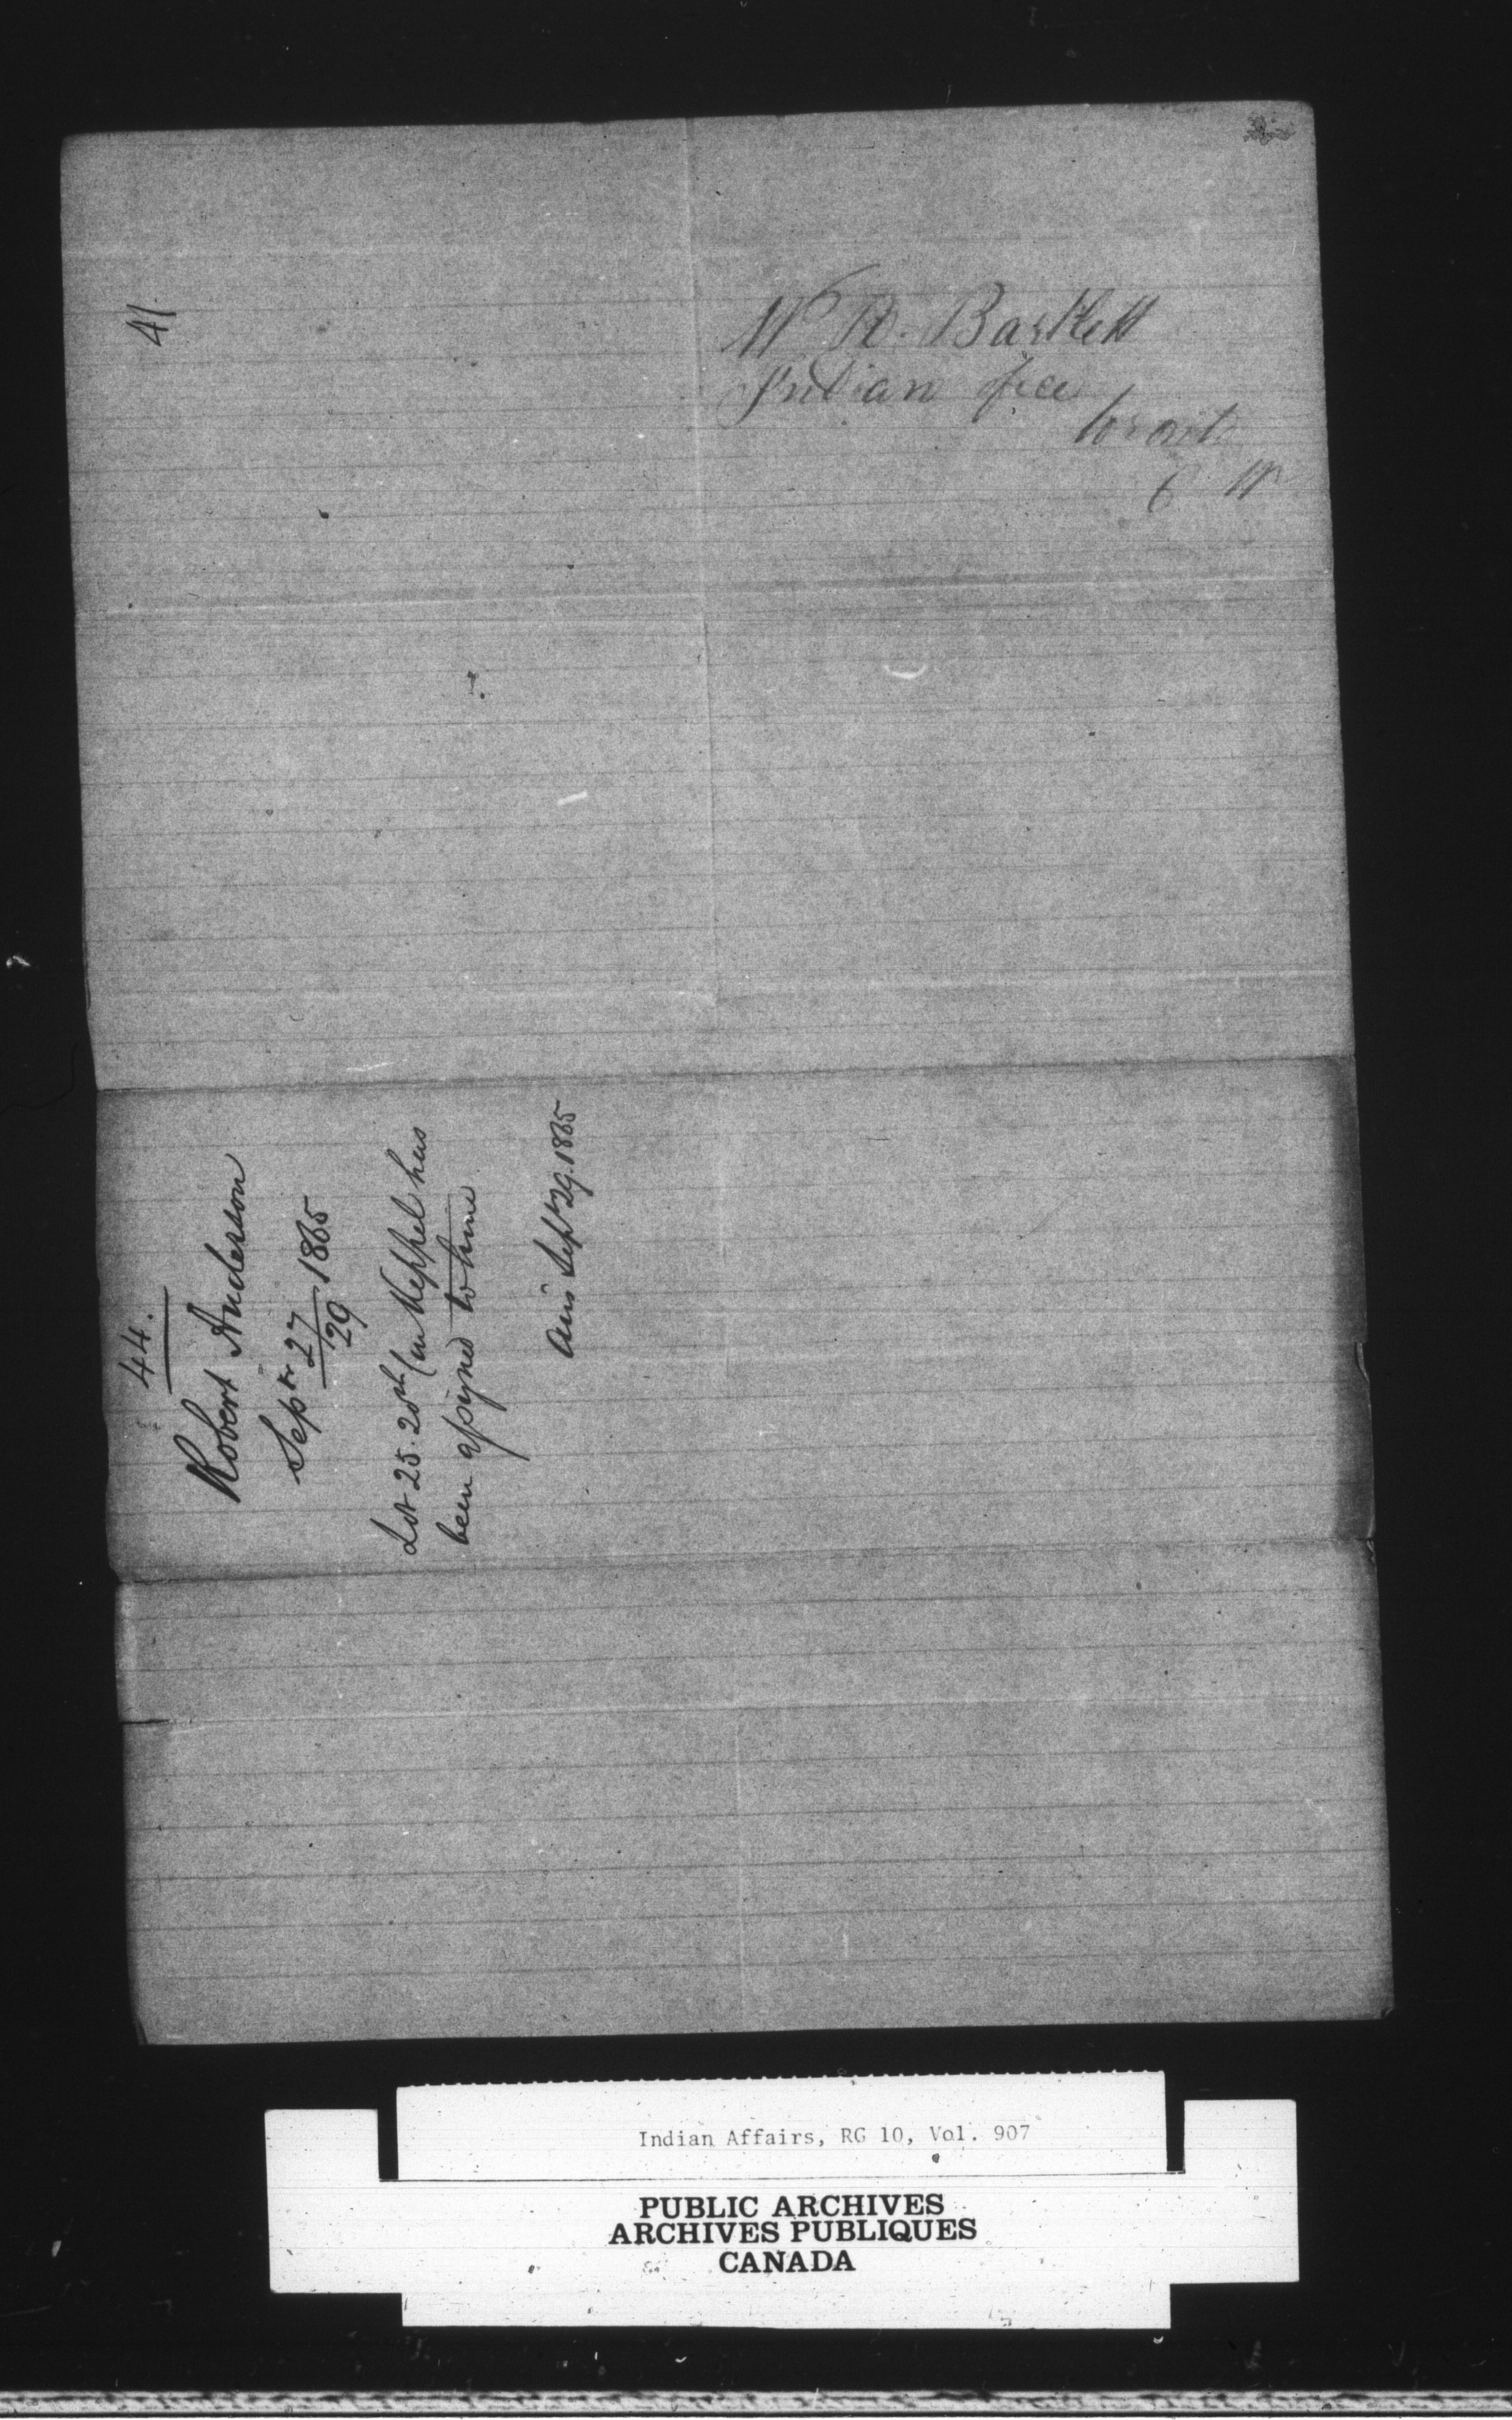 41
W R. Bartlett
Indian ofice
toronto
C W
44.
Robert Anderson
Sepr 27/29 1865
Lot 25. 20th Con Keppel has
been assigned to him
Ans Sept 29. 1865
Indian Affairs, RG 10, Vol. 907
PUBLIC ARCHIVES
ARCHIVES PUBLIQUES
CANADA